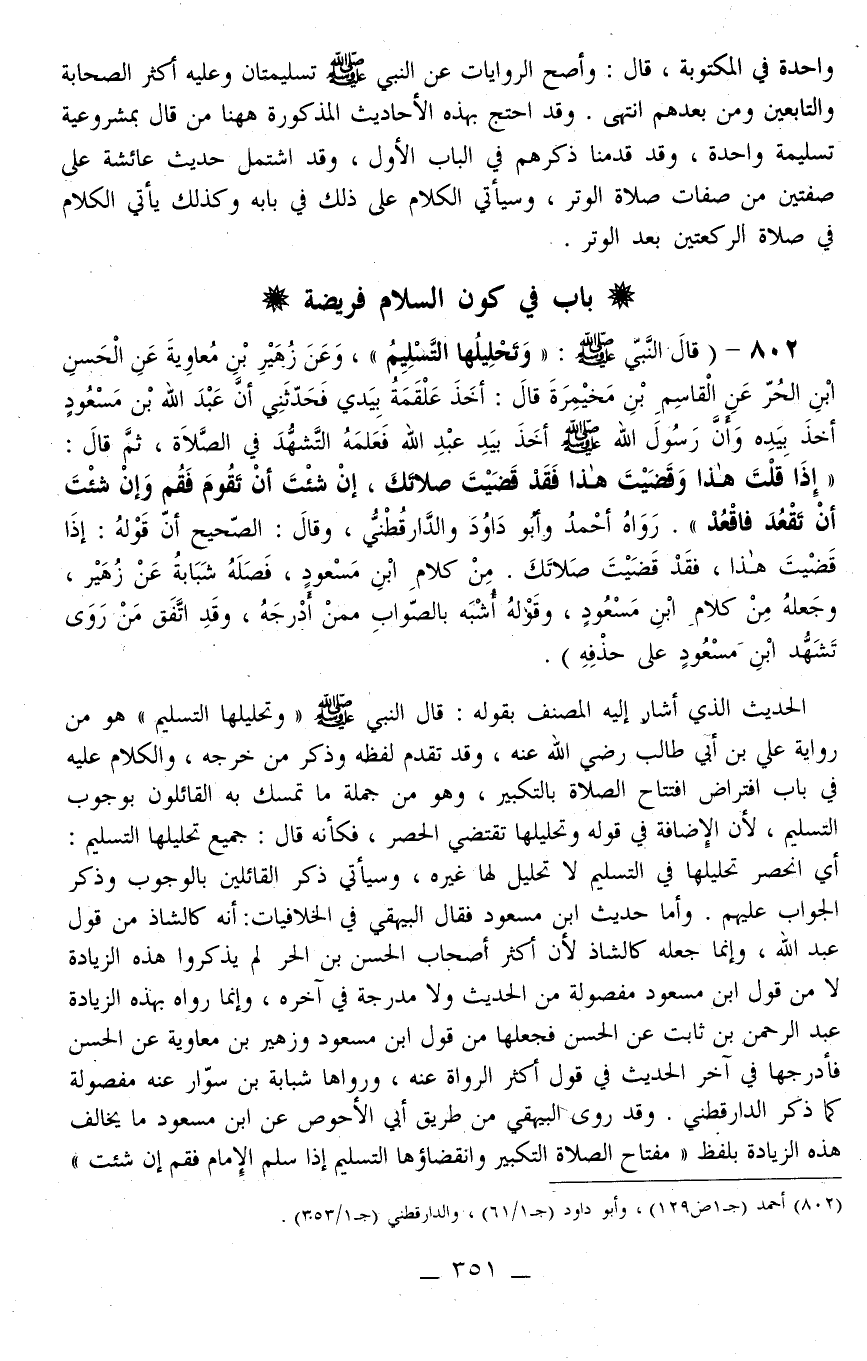 واحدة في المكتوبة ، قال : وأصح الروايات عن النبي ﷺ تسليمتان وعليه أكثر الصحابة
والتابعين ومن بعدهم انتهى . وقد احتج بهذه الأحاديث المذكورة ههنا من قال بمشروعية
تسليمة واحدة ، وقد قدمنا ذكرهم في الباب الأول ، وقد اشتمل حديث عائشة على
صفتين من صفات صلاة الوتر ، وسيأتي الكلام على ذلك في بابه وكذلك يأتي الكلام
في صلاة الركعتين بعد الوتر .
❋ باب في كون السلام فريضة ❋
٨٠٢ – ( قالَ النَّبِيّ ﷺ : « وَتَحْلِيلُها التَّسْلِيمُ » ، وَعَن زُهَيْرِ بْنِ مُعاوِيةَ عَنِ الْحَسنِ
ابْنِ الحُرّ عَنِ الْقاسِمِ بْنِ مَخيْمِرَةَ قالَ : أخَذَ عَلْقَمَةُ بِيَدي فَحَدّثَنِي أنَّ عَبْدَ الله بْنَ مَسْعُودٍ
أخذَ بِيَدِه وَأَنَّ رَسُولَ الله ﷺ أخَذَ بِيَدِ عبْدِ الله فَعَلمَهُ التَّشهُّدَ في الصَّلاَة ، ثمَّ قالَ :
« إِذَا قلْتَ هٰذا وَقضَيْتَ هٰذا فَقدْ قضَيْتَ صلاتَكَ ، إنْ شئْتَ أنْ تَقُومَ فَقُم وَإنْ شئْتَ
أنْ تَقْعُدَ فاقْعُدْ » . رَوَاهُ أحْمدُ وأبُو دَاوُدَ والدَّارقُطْنيُّ ، وقالَ : الصّحيح أنّ قَوْلهُ : إذَا
قَضْيتَ هٰذا ، فقَدْ قَضَيْتَ صَلاتَكَ . مِنْ كلامِ ابْنِ مَسْعودٍ ، فَصَلَهُ شَبَابةُ عَنْ زُهَيْر ،
وجَعلهُ مِنْ كلامِ ابْنِ مَسْعُودٍ ، وقوْلهُ أَشْبَه بالصّوابِ ممنْ أَدْرجَهُ ، وقدِ اتَّفَق مَنْ رَوَى
تَشَهُّد ابْنِ مَسْعُودٍ على حذْفِهِ ) .
الحديث الذي أشار إليه المصنف بقوله : قال النبي ﷺ « وتحليلها التسليم » هو من
رواية علي بن أبي طالب رضي الله عنه ، وقد تقدم لفظه وذكر من خرجه ، والكلام عليه
في باب افتراض افتتاح الصلاة بالتكبير ، وهو من جملة ما تمسك به القائلون بوجوب
التسليم ، لأن الإضافة في قوله وتحليلها تقتضي الحصر ، فكأنه قال : جميع تحليلها التسليم :
أي انحصر تحليلها في التسليم لا تحليل لها غيره ، وسيأتي ذكر القائلين بالوجوب وذكر
الجواب عليهم . وأما حديث ابن مسعود فقال البيهقي في الخلافيات: أنه كالشاذ من قول
عبد الله ، وإنما جعله كالشاذ لأن أكثر أصحاب الحسن بن الحر لم يذكروا هذه الزيادة
لا من قول ابن مسعود مفصولة من الحديث ولا مدرجة في آخره ، وإنما رواه بهذه الزيادة
عبد الرحمن بن ثابت عن الحسن فجعلها من قول ابن مسعود وزهير بن معاوية عن الحسن
فأدرجها في آخر الحديث في قول أكثر الرواة عنه ، ورواها شبابة بن سوّار عنه مفصولة
كما ذكر الدارقطني . وقد روى البيهقي من طريق أبي الأحوص عن ابن مسعود ما يخالف
هذه الزيادة بلفظ « مفتاح الصلاة التكبير وانقضاؤها التسليم إذا سلم الإمام فقم إن شئت »
(٨٠٢) أحمد (جـ١ص١٢٩) ، وأبو داود (جـ٦١/١) ، والدارقطني (جـ٣٥٣/١) .
— ٣٥١ —